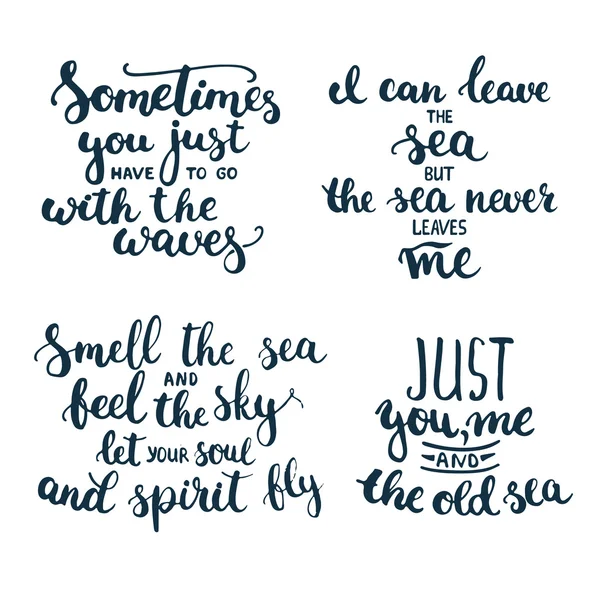 Sometimes
you just
HAVE TO GO
with the
waves
I can leave
THE
sea
BUT
the sea never
LEAVES
me
Smell the sea
AND
feel the sky
let YOUR soul
and spirit fly
JUST
you, me
AND
the old sea